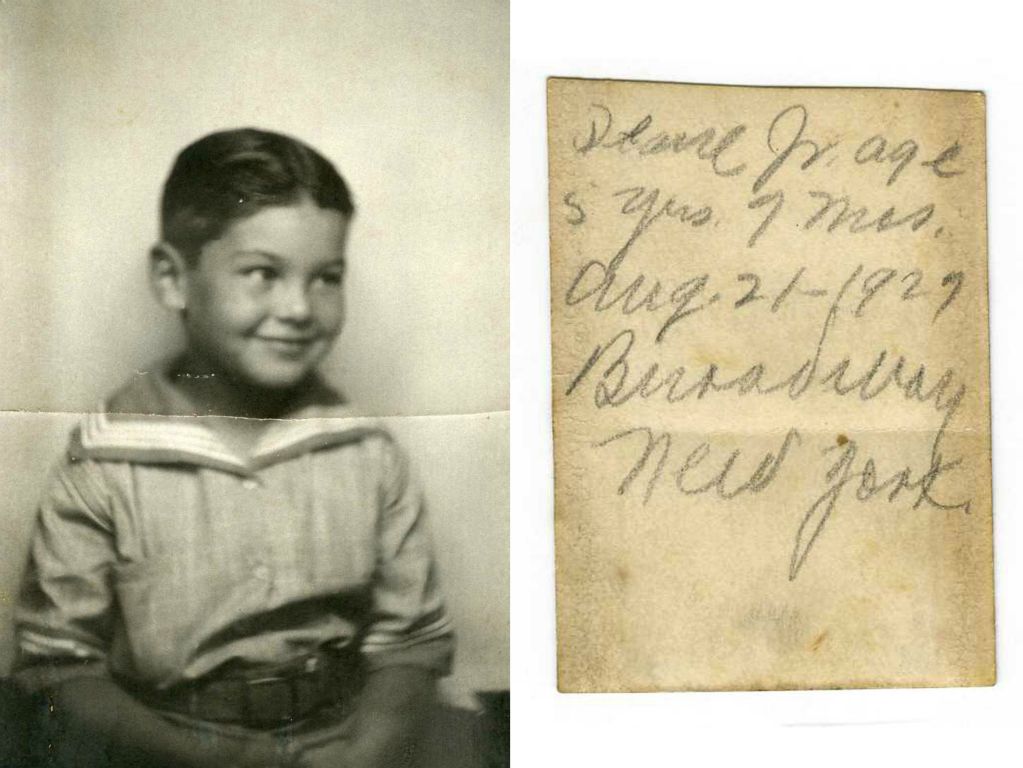 Jr. age
5 yrs. 9 mos.
Aug. 21-1929
Broadway
New York.